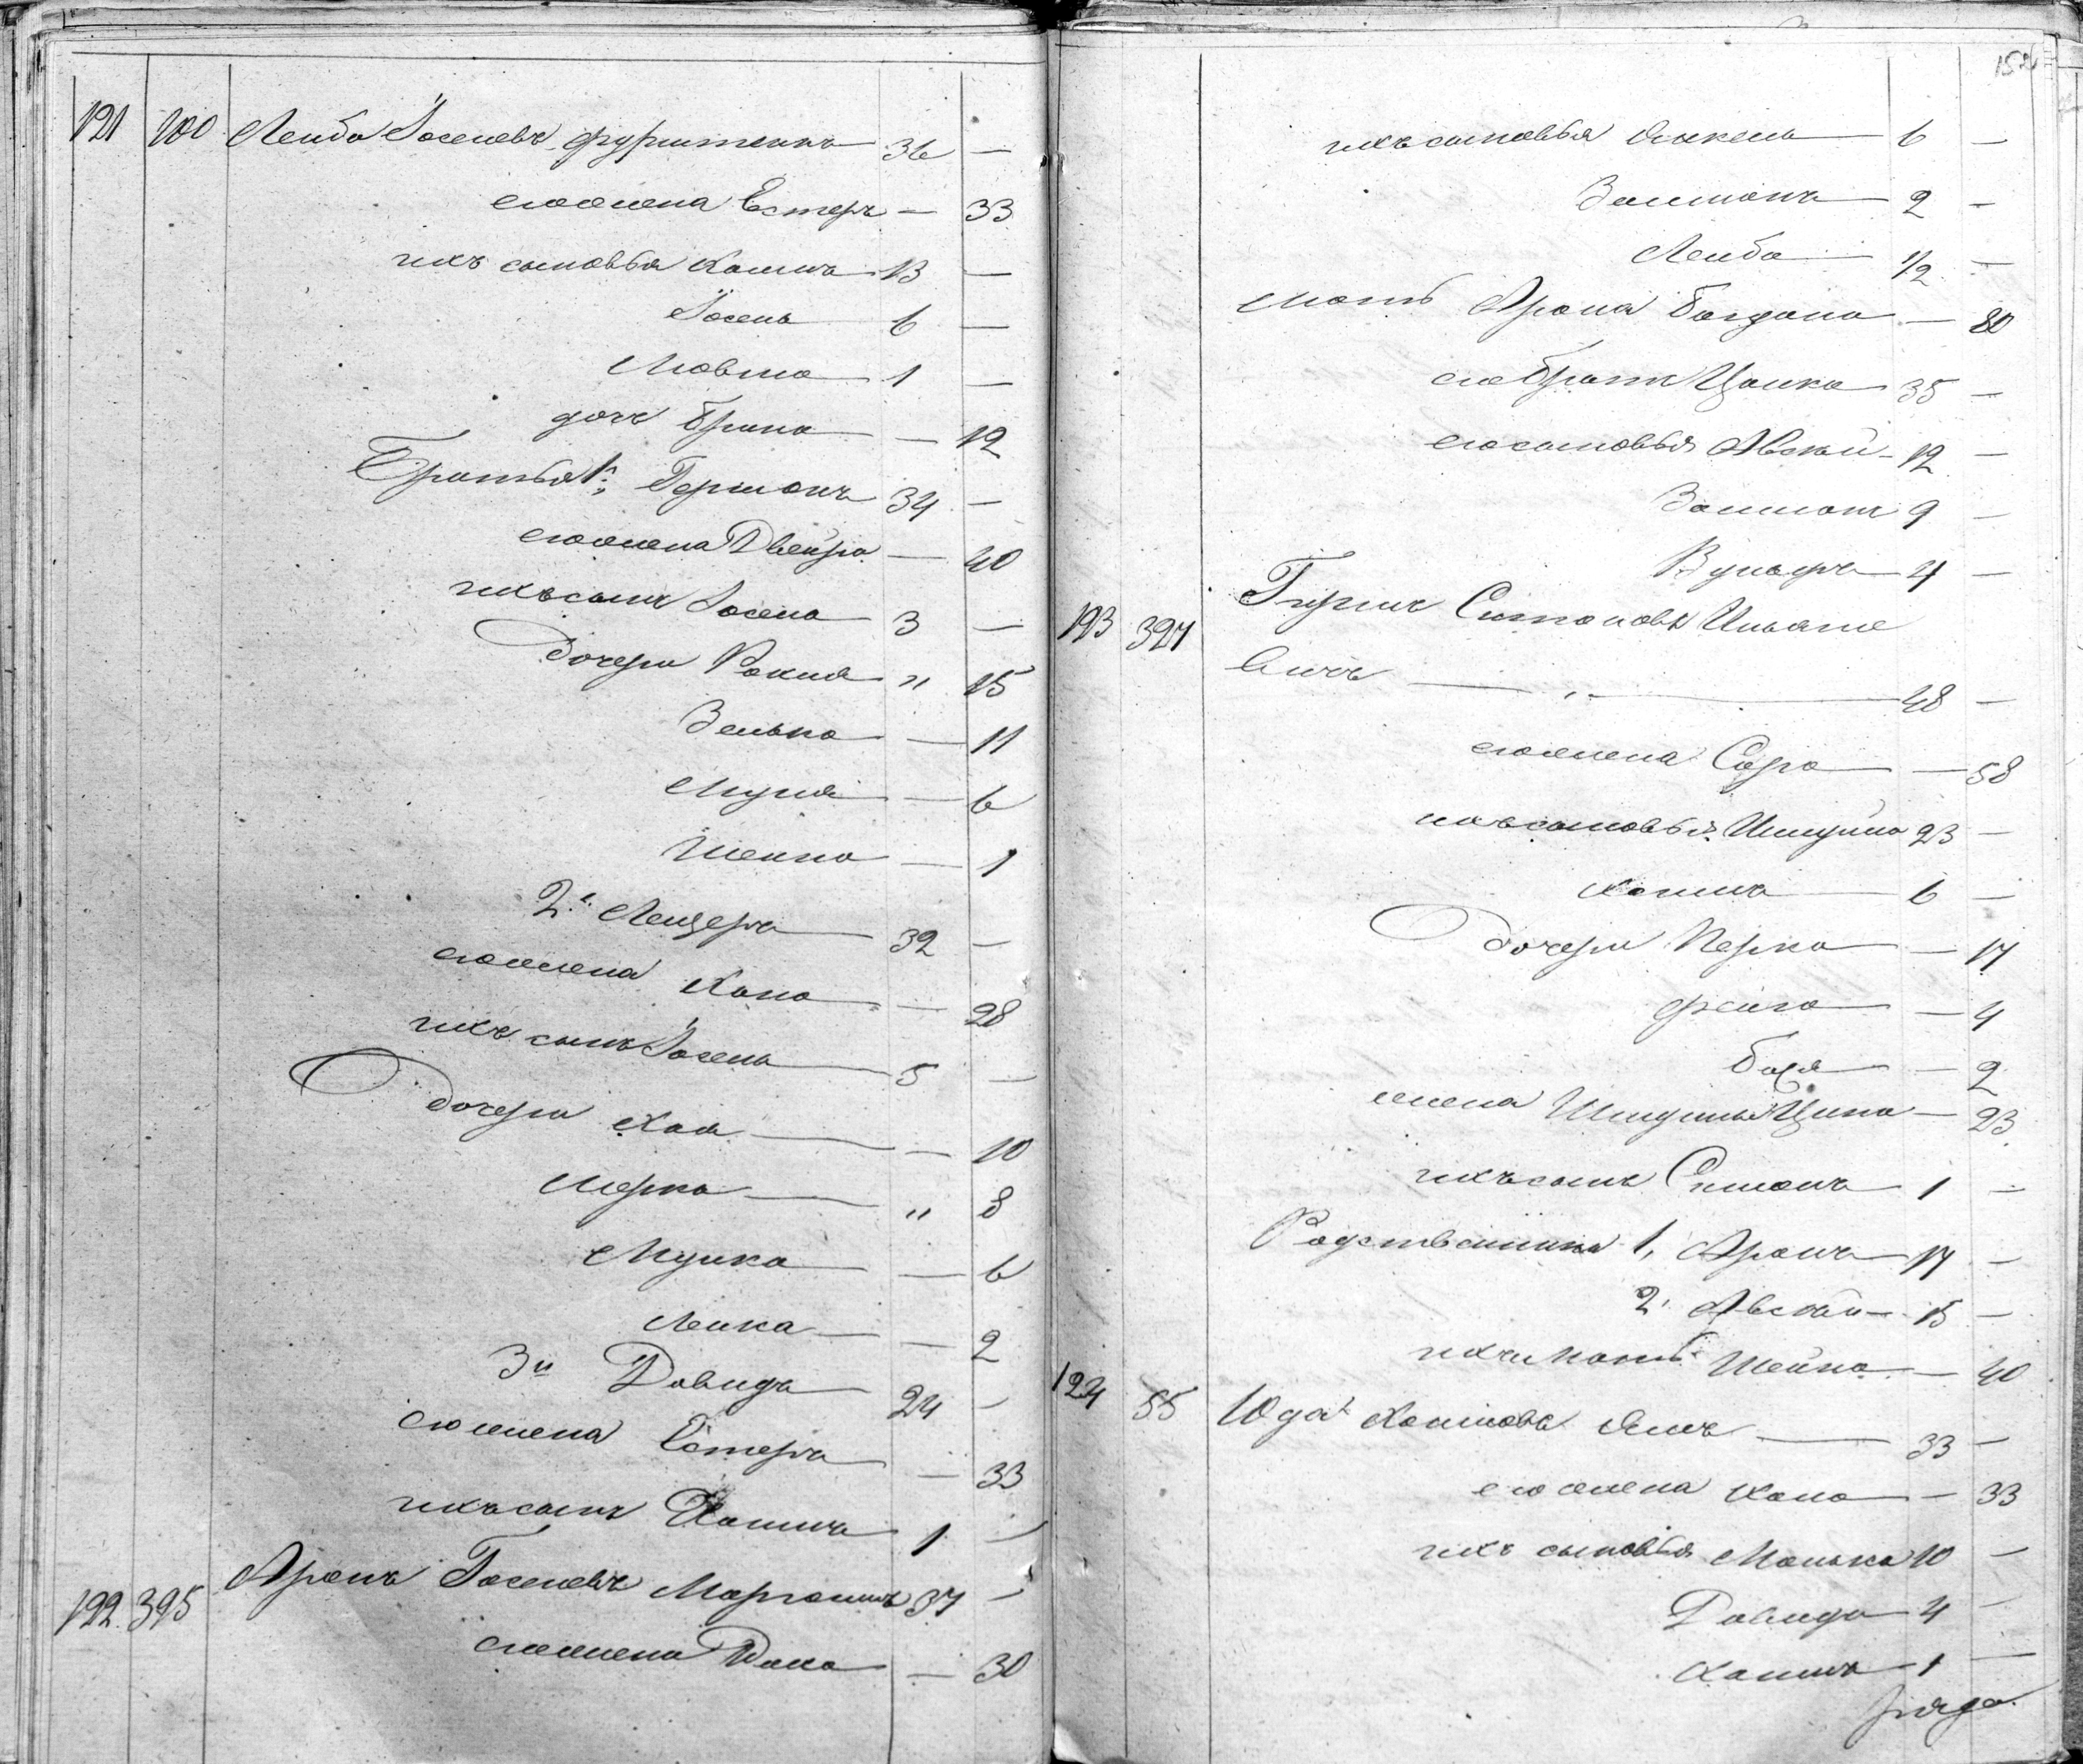 121 100 Лейба Іоселевъ Фурштенъ 36 —
его жена Естеръ — 33
ихъ сыновья Хаимъ 13 —
Іосель 6 —
Мовша 1 —
дочь Брина — 12
Братья 1й Гершонъ 34 —
его жена Двейра — 40
ихъ сынъ Іосель 3 —
дочери Рохля " 15
Зелька — 11
— 6
Шейна — 1
2й Лейзеръ 32 —
его жена Хана — 28
ихъ сынъ Іосель 5 —
дочери Хая — 10
Мерка " 8
— 6
Лейка — 2
3й Довидъ 24 —
его жена Естеръ — 33
ихъ сынъ Хаимъ 1 —
122 395 Аронъ Іоселевъ 37 —
его жена — 30
152
ихъ сыновья 6 —
Залманъ 2 —
Лейба 1/2 —
мать Арона Богдана — 80
его братъ Цалка 35 —
его сыновья Авсей 12 —
Залманъ 9 —
Вульфъ 4 —
123 327 Гиршъ Симоновъ Ильяше
вичъ 48 —
его жена Сора — 58
ихъ сыновья 23 —
Хаимъ 6 —
дочери Перка — 17
Фейга — 4
Бася — 2
жена Ципа — 23
ихъ сынъ Симонъ 1 —
Родственники 1, Аронъ 17 —
2, Авсей 15 —
ихъ мать Шейна — 40
124 55 Юда Хаимовъ 33 —
его жена Хана — 33
ихъ сыновья Манька 10 —
Довидъ 4 —
Хаимъ 1 —